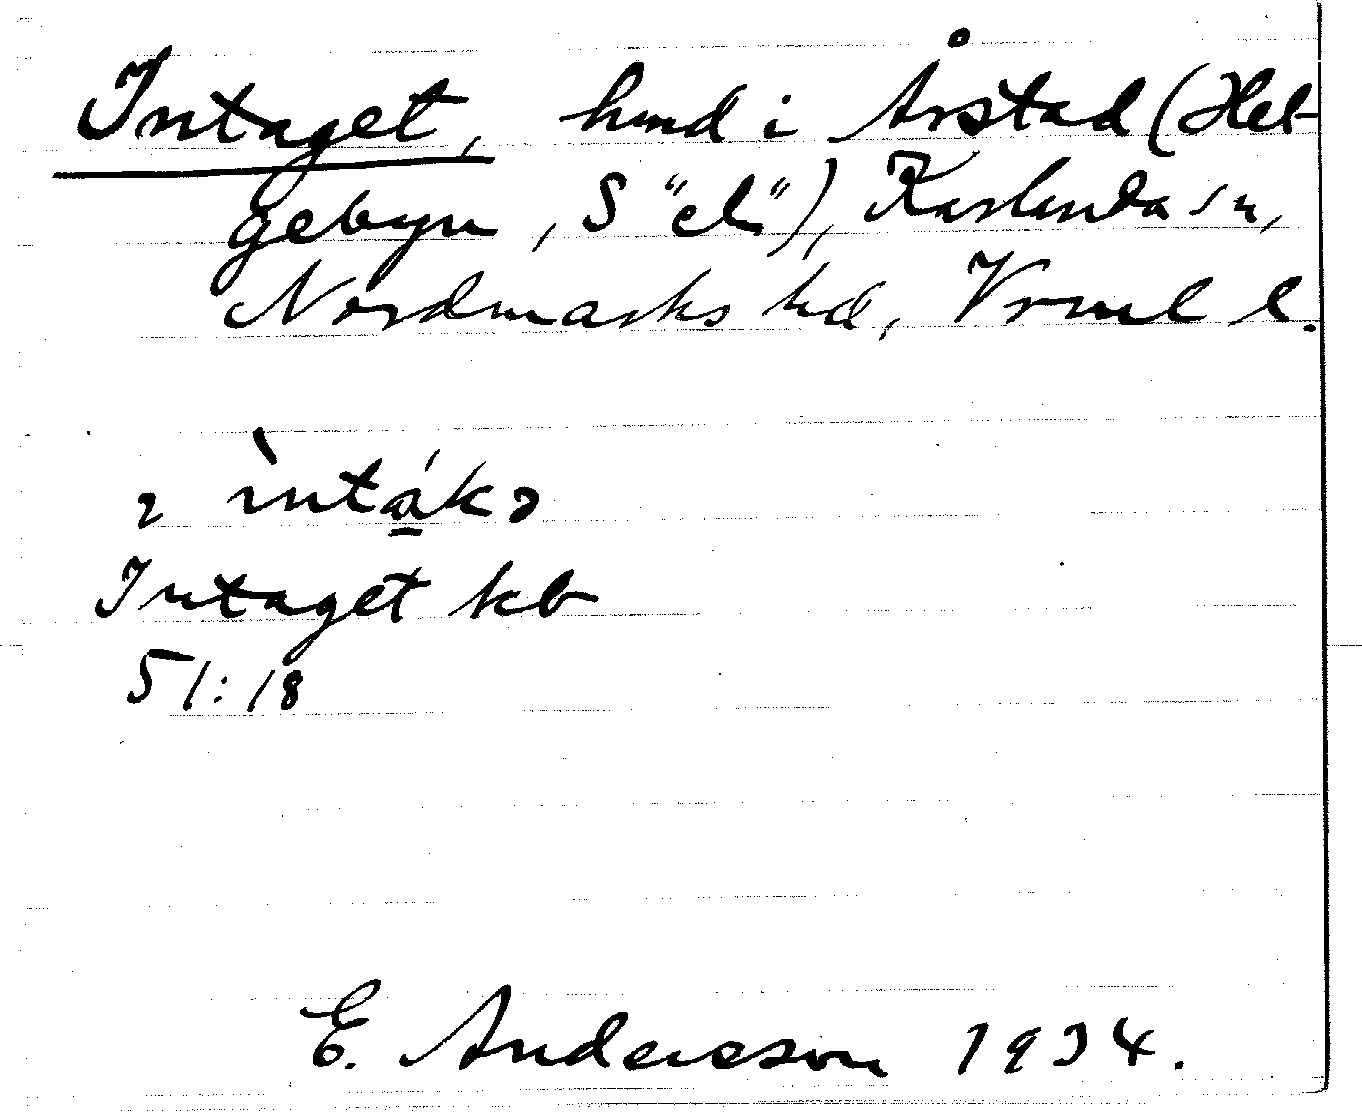 Intaget, hmd i Årstad (Hel-
gebyn, S "el"), Karlanda sn,
Nordmarks hd, Vrml l.
2 ìntá̱kə
Intaget kb
51:18
E. Andersson 1934.